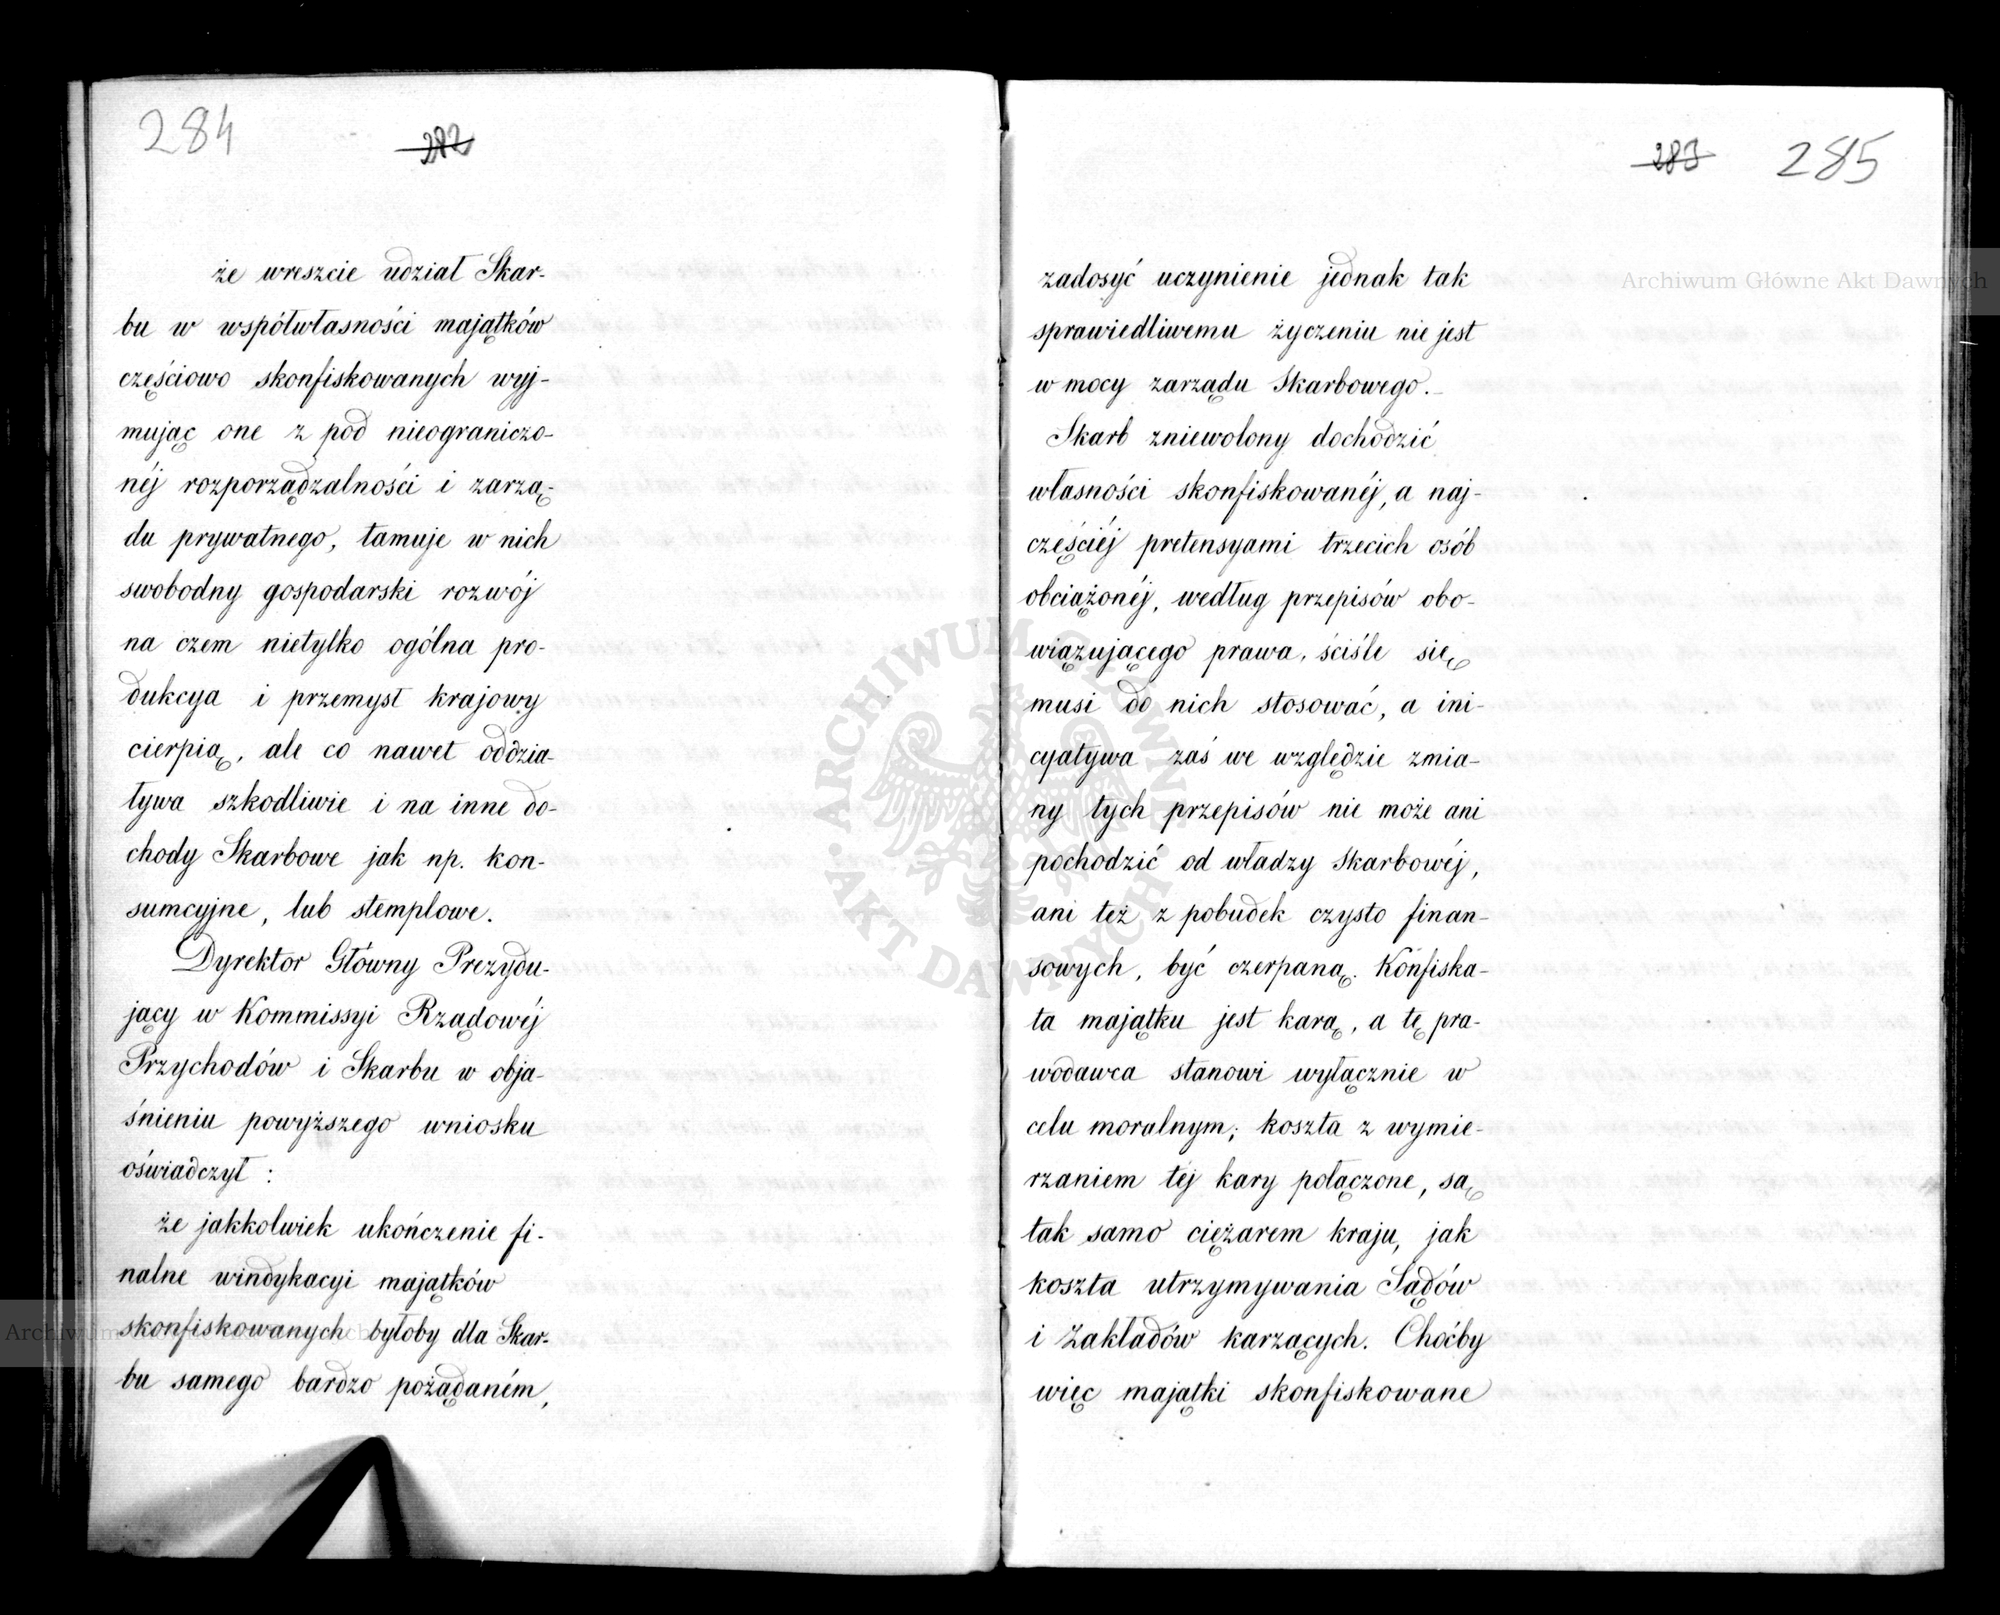 284 282
że wreszcie udział Skar-
bu w współwłasności majątków
częściowo skonfiskowanych wyj-
mując one z pod nieograniczo-
néj rozporządzalności i zarzą-
du prywatnego, tamuje w nich
swobodny gospodarski rozwój
na czem nietylko ogólna pro-
dukcya i przemysł krajowy
cierpią, ale co nawet oddzia-
ływa szkodliwie i na inne do-
chody Skarbowe jak np. kon-
sumcyjne, lub stemplowe.
Dyrektor Główny Prezydu-
jący w Kommissyi Rządowéj
Przychodów i Skarbu w obja-
śnieniu powyższego wniosku
oświadczył:
że jakkolwiek ukończenie fi-
nalne windykacyi majątków
skonfiskowanych byłoby dla Skar-
bu samego bardzo pożądaném,
283 285
zadosyć uczynienie jednak tak
sprawiedliwemu życzeniu nie jest
w mocy zarządu Skarbowego.
Skarb zniewolony dochodzić
własności skonfiskowanéj, a naj-
częściéj pretensyami trzecich osób
obciążonéj, według przepisów obo-
wiązującego prawa, ściśle się
musi do nich stosować, a ini-
cyatywa zaś we względzie zmia-
ny tych przepisów nie może ani
pochodzić od władzy Skarbowéj,
ani też z pobudek czysto finan-
sowych, być czerpaną. Konfiska-
ta majątku jest karą, a tę pra-
wodawca stanowi wyłącznie w
celu moralnym; koszta z wymie-
rzaniem téj kary połączone, są
tak samo ciężarem kraju, jak
koszta utrzymywania Sądów
i Zakładów karzących. Choćby
więc majątki skonfiskowane
Archiwum Główne Akt Dawnych
ARCHIWUM GŁÓWNE AKT DAWNYCH